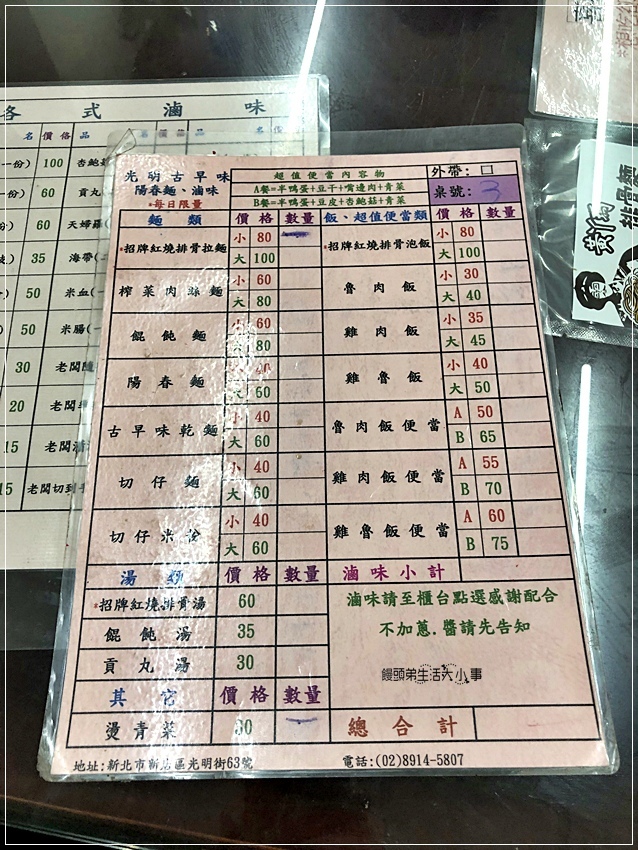 各式滷味
名 價格 品
一份) 100 杏鮑菇
) 60 貢丸
60 天婦羅
) 35 海帶(二
) 50 米血(一
) 50 米腸(一
30 老闆隨
20 老闆
15 老闆
15 老闆切到手
光明古早味
陽春麵、滷味
*每日限量
超值便當內容物
A餐=半鴨蛋+豆干+嘴邊肉+青菜
B餐=半鴨蛋+豆皮+杏鮑菇+青菜
外帶:□
桌號: 3
麵類 價格 數量 飯、超值便當類 價格 數量
*招牌紅燒排骨拉麵 小 80 *招牌紅燒排骨泡飯 小 80
大 100 大 100
榨菜肉絲麵 小 60 魯肉飯 小 30
大 80 大 40
餛飩麵 小 60 雞肉飯 小 35
大 80 大 45
陽春麵 小 40 雞魯飯 小 40
大 60 大 50
古早味乾麵 小 40 魯肉飯便當 A 50
大 60 B 65
切仔麵 小 40 雞肉飯便當 A 55
大 60 B 70
切仔米粉 小 40 雞魯飯便當 A 60
大 60 B 75
湯類 價格 數量 滷味小計
*招牌紅燒排骨湯 60
餛飩湯 35
貢丸湯 30
滷味請至櫃台點選感謝配合
不加蔥.醬請先告知
饅頭弟生活大小事
其它 價格 數量
燙青菜 30 總合計
地址:新北市新店區光明街63號 電話:(02)8914-5807